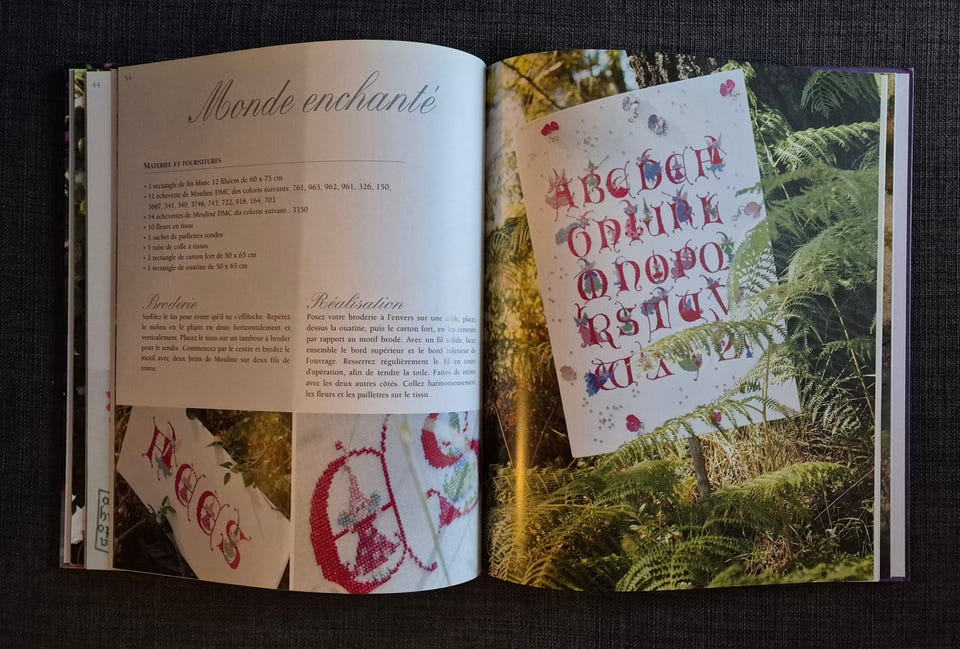 44
54
Monde enchanté
MATÉRIEL ET FOURNITURES
• 1 rectangle de lin blanc 12 fils/cm de 60 x 75 cm
• 11 échevette de Mouliné DMC des coloris suivants: 761, 963, 962, 961, 326, 150,
3687, 341, 340, 3746, 743, 722, 918, 164, 703
• 14 échevettes de Mouliné DMC du coloris suivant : 3350
• 10 fleurs en tissu
• 1 sachet de paillettes rondes
• 1 tube de colle à tissus
• 1 rectangle de carton fort de 50 x 65 cm
• 1 rectangle de ouatine de 50 x 65 cm
Broderie
Surfilez le lin pour éviter qu'il ne s'effiloche. Repérez
le milieu en le pliant en deux horizontalement et
verticalement. Placez le tissu sur un tambour à broder
pour le tendre. Commencez par le centre et brodez le
motif avec deux brins de Mouliné sur deux fils de
trame.
Réalisation
Posez votre broderie à l'envers sur une table, placez
dessus la ouatine, puis le carton fort, en les centrant
par rapport au motif brodé. Avec un fil solide, lacez
ensemble le bord supérieur et le bord inférieur de
l'ouvrage. Resserrez régulièrement le fil en cours
d'opération, afin de tendre la toile. Faites de même
avec les deux autres côtés. Collez harmonieusement
les fleurs et les paillettes sur le tissu.
ABCDEF
GHIJKL
MNOPQ
RSTUV
WXYZ